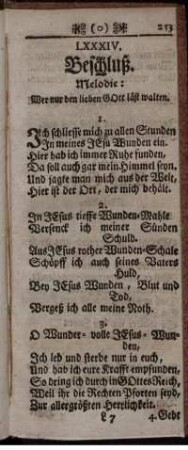 (o) 213
LXXXIV.
Beschluß.
Melodie:
Wer nur den lieben GOtt läst walten.
1.
Ich schliesse mich zu allen Stunden
In meines JEsu Wunden ein.
Hier hab ich immer Ruhe funden,
Da soll auch gar mein Himmel seyn.
Und jagte man mich aus der Welt,
Hier ist der Ort, der mich behält.
2.
In JEsus tieffe Wunden-Mahle
Versenck ich meiner Sünden
Schuld.
Aus JEsus rother Wunden-Schale
Schöpff ich auch seines Vaters
Huld,
Bey JEsus Wunden, Blut und
Tod,
Vergeß ich alle meine Noth.
3.
O Wunder-volle JEsus-Wun-
den,
Ich leb und sterbe nur in euch,
Und hab ich eure Krafft empfunden,
So dring ich durch in GOttes Reich,
Weil ihr die Rechten Pforten seyd,
Zur allergrößten Herrlichkeit.
L 7 4. Geht